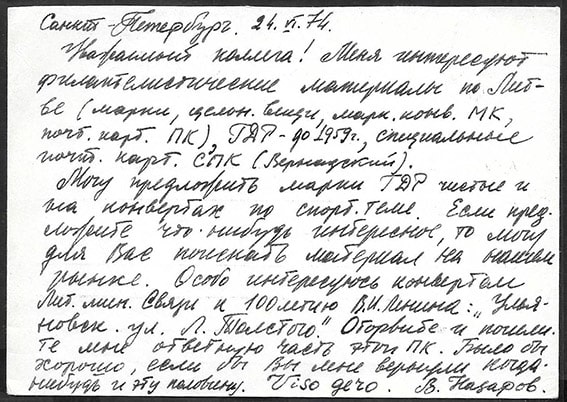 Санкт-Петербург. 24.VI.74.
Уважаемый коллега! Меня интересуют
филателистические материалы по Лит-
ве (марки, сделон. вещи, марк. конв. МК,
почт. карт. ПК), ГДР - до 1959г., специальные
почт. карт. СПК (Вернадский).
Могу предложить марки ГДР чистые и
на конвертах по спорт. теме. Если пред-
ложите что-нибудь интересное, то могу
для Вас поискать материал на нашем
рынке. Особо интересуюсь конвертом
Лит. мин. Связи к 100летию В.И.Ленина: „Улья-
новск. ул. Л. Толстого." Оторвите и пошли-
те мне ответную часть этой ПК. Было бы
хорошо, если бы Вы мне вернули когда-
нибудь и эту половину. Viso gero. В. Назаров.